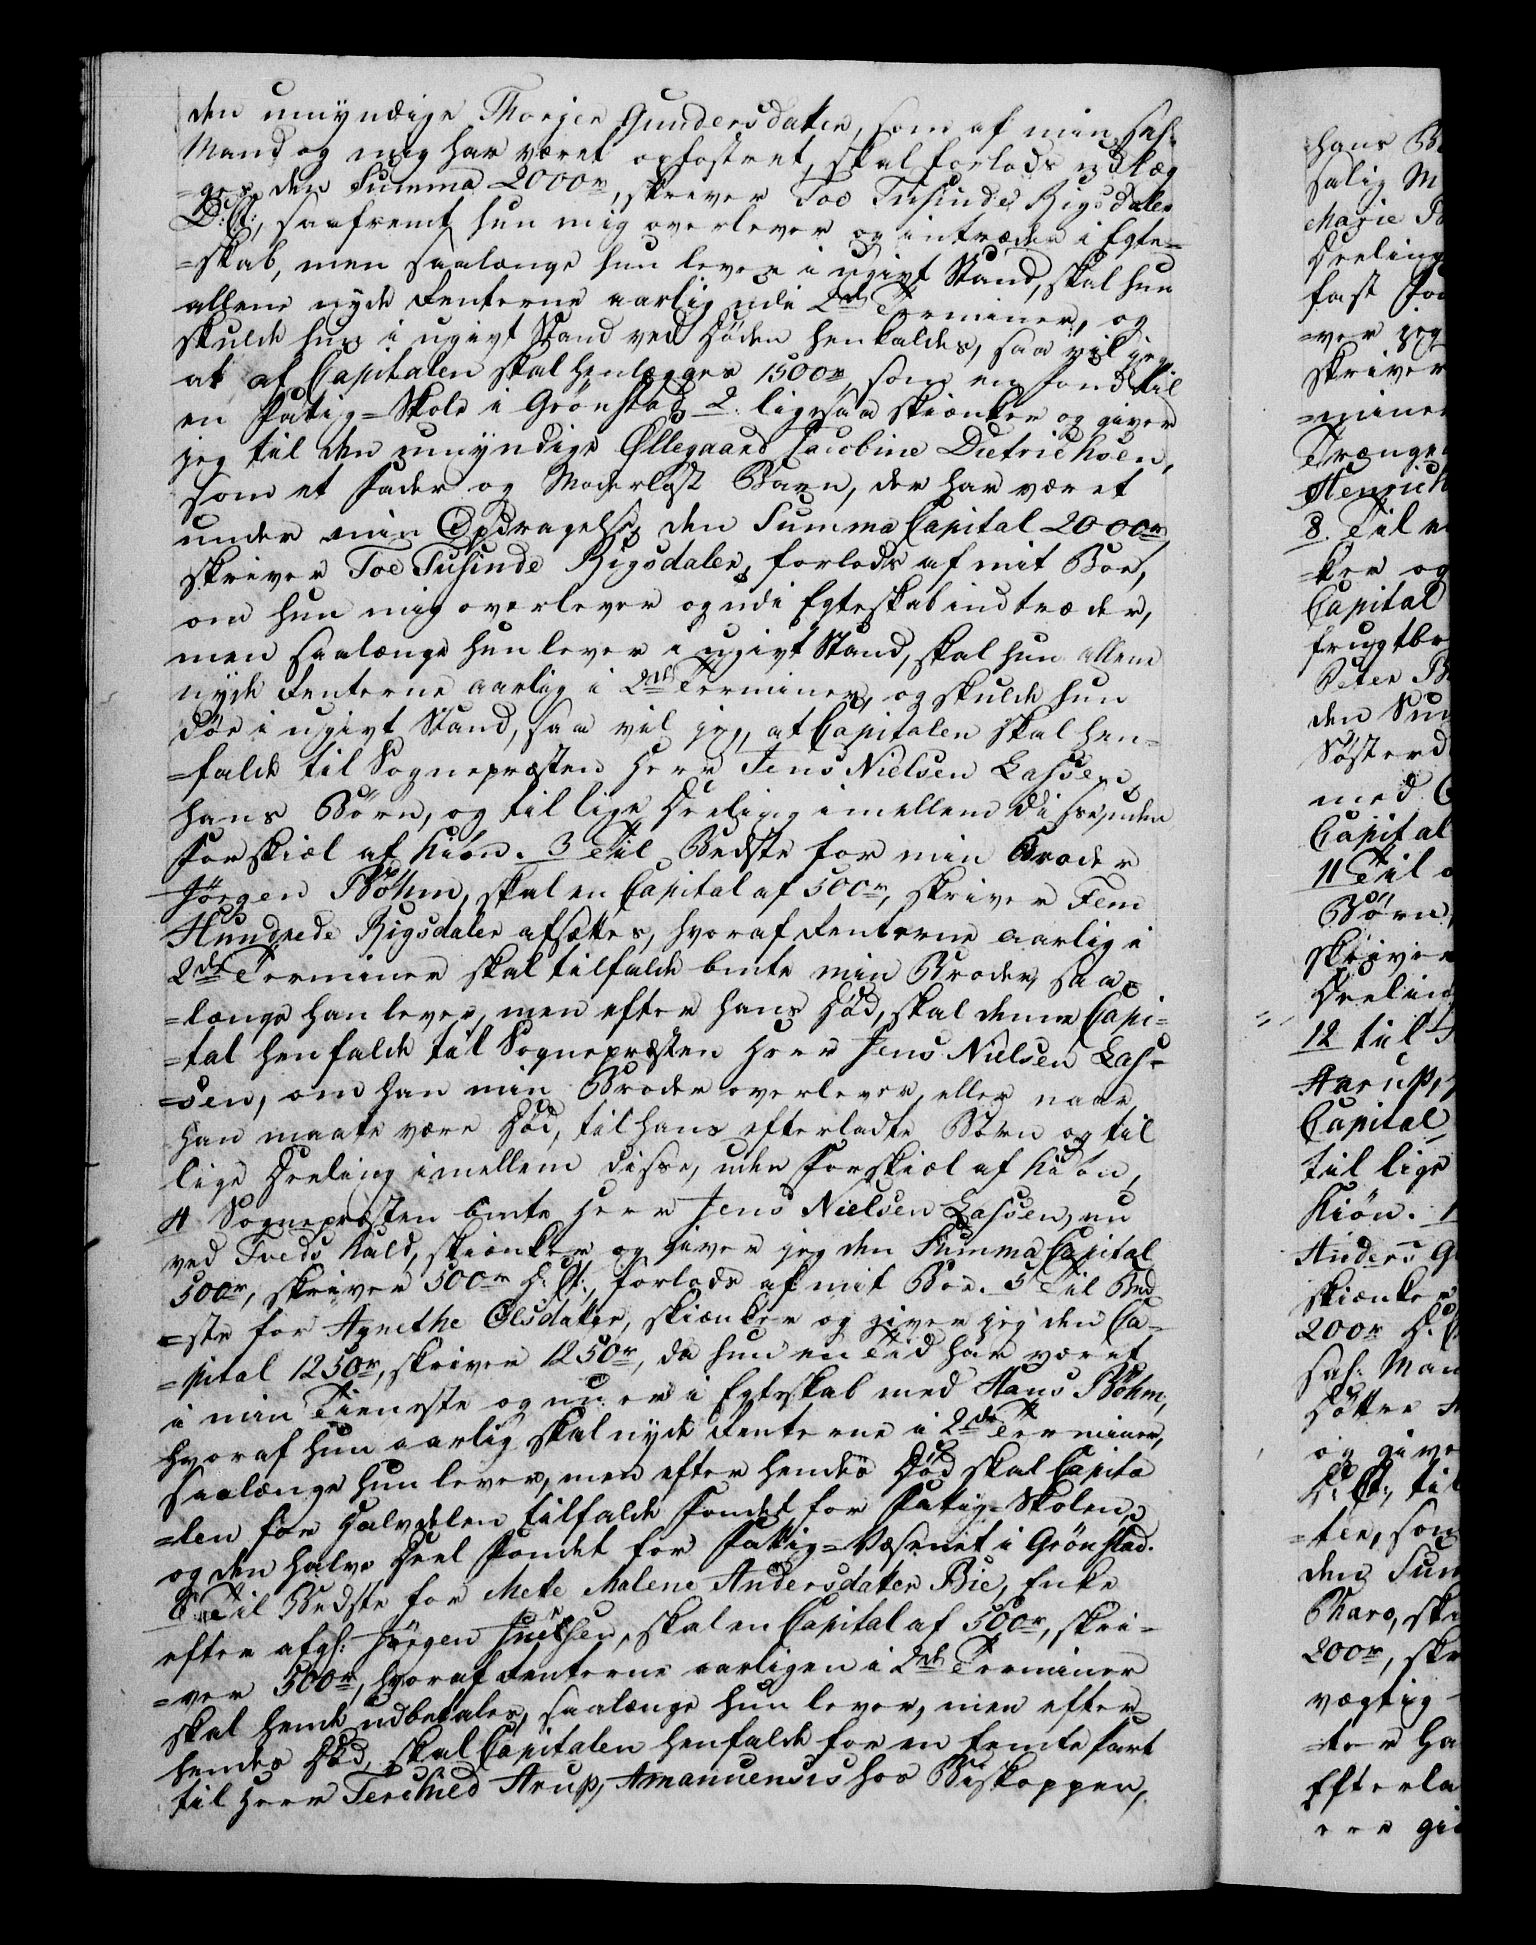 den umyndige Thorjer Gundersdatter, som af min sal:
Mand og mig har været opfostret, skal forlods udlæg
=ges den Summa 2000r, skriver Toe Tusinde Rigsdaler
D: Ct:, saafremt hun mig overlever og intræder i Egte=
=skab, men saalænge hun lever i ugivt Stand, skal hun
allene nyde Renterne aarlig udi 2de Terminer, og
skulde hun i ugivt Stand ved Døden henkaldes, saa vil jeg
at af Capitalen skal henlægges 1500r, som en Fond til
en Fatig=Skole i Grønstad 2. ligesaa skiænker og giver
jeg til den umyndige Øllegaard Jacobine Dietrichsen,
som et Fader og Moderløst Barn, der har været
under min Opdragelse, den Summa Capital 2000r,
skriver Toe Tusinde Rigsdaler, forlods af mit Boe,
om hun mig overlever og udi Egteskab indtræder,
men saalænge hun lever i ugivt Stand, skal hun allene
nyde Renterne aarlig i 2de Terminer, og skulde hun
døe i ugivt Stand, saa vil jeg, at Capitalen skal hen=
=falde til Sognepræsten Herr Jens Nielsen Lassens
hans Børn, og til lige Deeling imellem disse, uden
Forskiæl af Kiøn. 3 Til Bedste for min Broder
Jørgen Bøhm, skal en Capital af 500r, skriver Fem
Hundrede Rigsdaler afsættes, hvoraf Renterne aarlig i
2de Terminer skal tilfalde bmte min Broder, saa
=længe han lever, men efter hans Død, skal denne Capi=
=tal henfalde til Sognepræsten Herr Jens Nielsen Las=
=sen, om han min Broder overlever, eller naar
han maatte være Død, til hans efterladte Børn og til
lige Deeling imellem disse, uden Forskiæl af Kiøn,
4 Sognepræsten bmte Herr Jens Nielsen Lassen, nu
ved Tveds Kald, skiænker og giver jeg den Summa Capital
500r, skriver 500r D: Ct:, forlods af mit Boe. 5 Til Bed
=ste for Agnethe Olsdatter, skiænker og giver jeg den Ca=
=pital 1250r, skriver 1250r, da hun en Tid har været
i min Tieneste og nu er i Egteskab med Hans Bøhm,
hvoraf hun aarlig skal nyde Renterne i 2de Terminer,
saalænge hun lever, men efter hendes Død skal Capita
=len for Halvdelen tilfalde Fondet for Fatig=Skolen,
og den halve Deel Fondet for Fattig=Væsenet i Grønstad.
6 Til Bedste for Mette Malene Andersdatter Bie, Enke
efter afg: Jørgen Juelsen, skal en Capital af 500r, skri=
=ver 500r, hvoraf Renterne aarligen i 2de Terminer
skal hende udbetales, saalænge hun lever, men efter
hendes Død, skal Capitalen henfalde for en femte Part
til Herr Terchild Arup, Amanuensis hos Biskoppen,
hans B
salig M
Marie
Deeling
fast
=ver jeg
skriver
=miner
Trænge
Henrich
8. Til
=ker og
Capital
frugtbr
Peter
den Sum
Søsterd
med
Capital
11 Til
Børn
skriver
Deeling
12 til
Aarup,
Capital
til lige
Kiøn.
Anders
skiænker
200r D: C
sal: Man
Døtre
og give
D: Ct:, til
=ter, som
den Sum
Baro, sk
200r, skr
vægtig
=ter ha
Efterla
gi